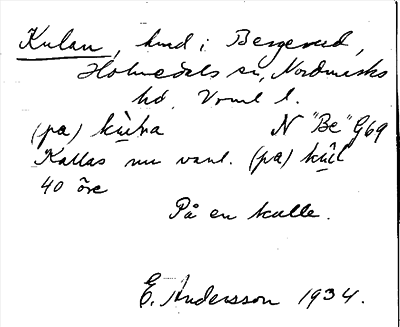 Kulan, hmd i Bergerud,
Holmedals sn, Nordmarks
hd, Vrml l.
(pa) kùlra N "Be" G69
Kallas nu vanl. (pa) kûl
40 öre
På en kulle.
E. Andersson 1934.